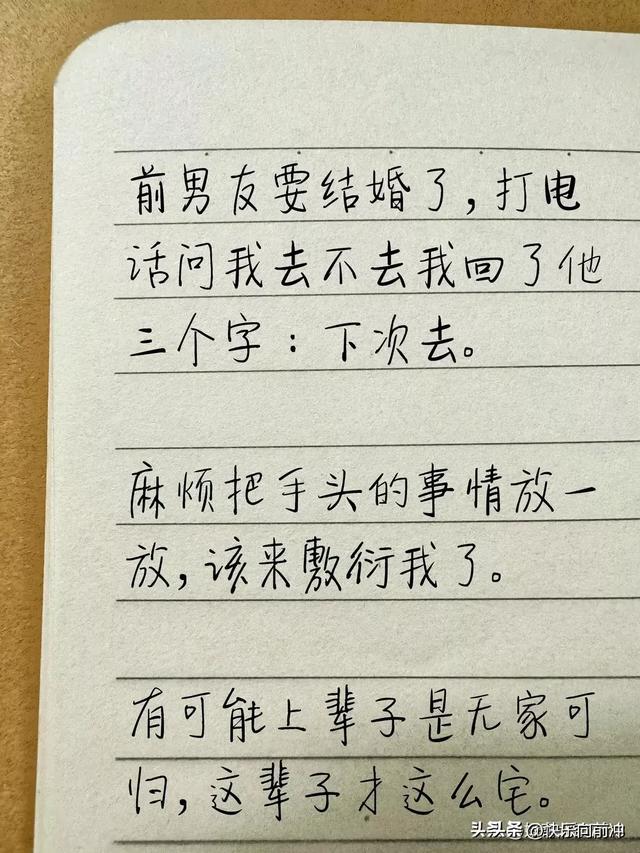 前男友要结婚了，打电
话问我去不去我回了他
三个字：下次去。
麻烦把手头的事情放一
放，该来敷衍我了。
有可能上辈子是无家可
归，这辈子才这么宅。
头条 @快乐向前冲